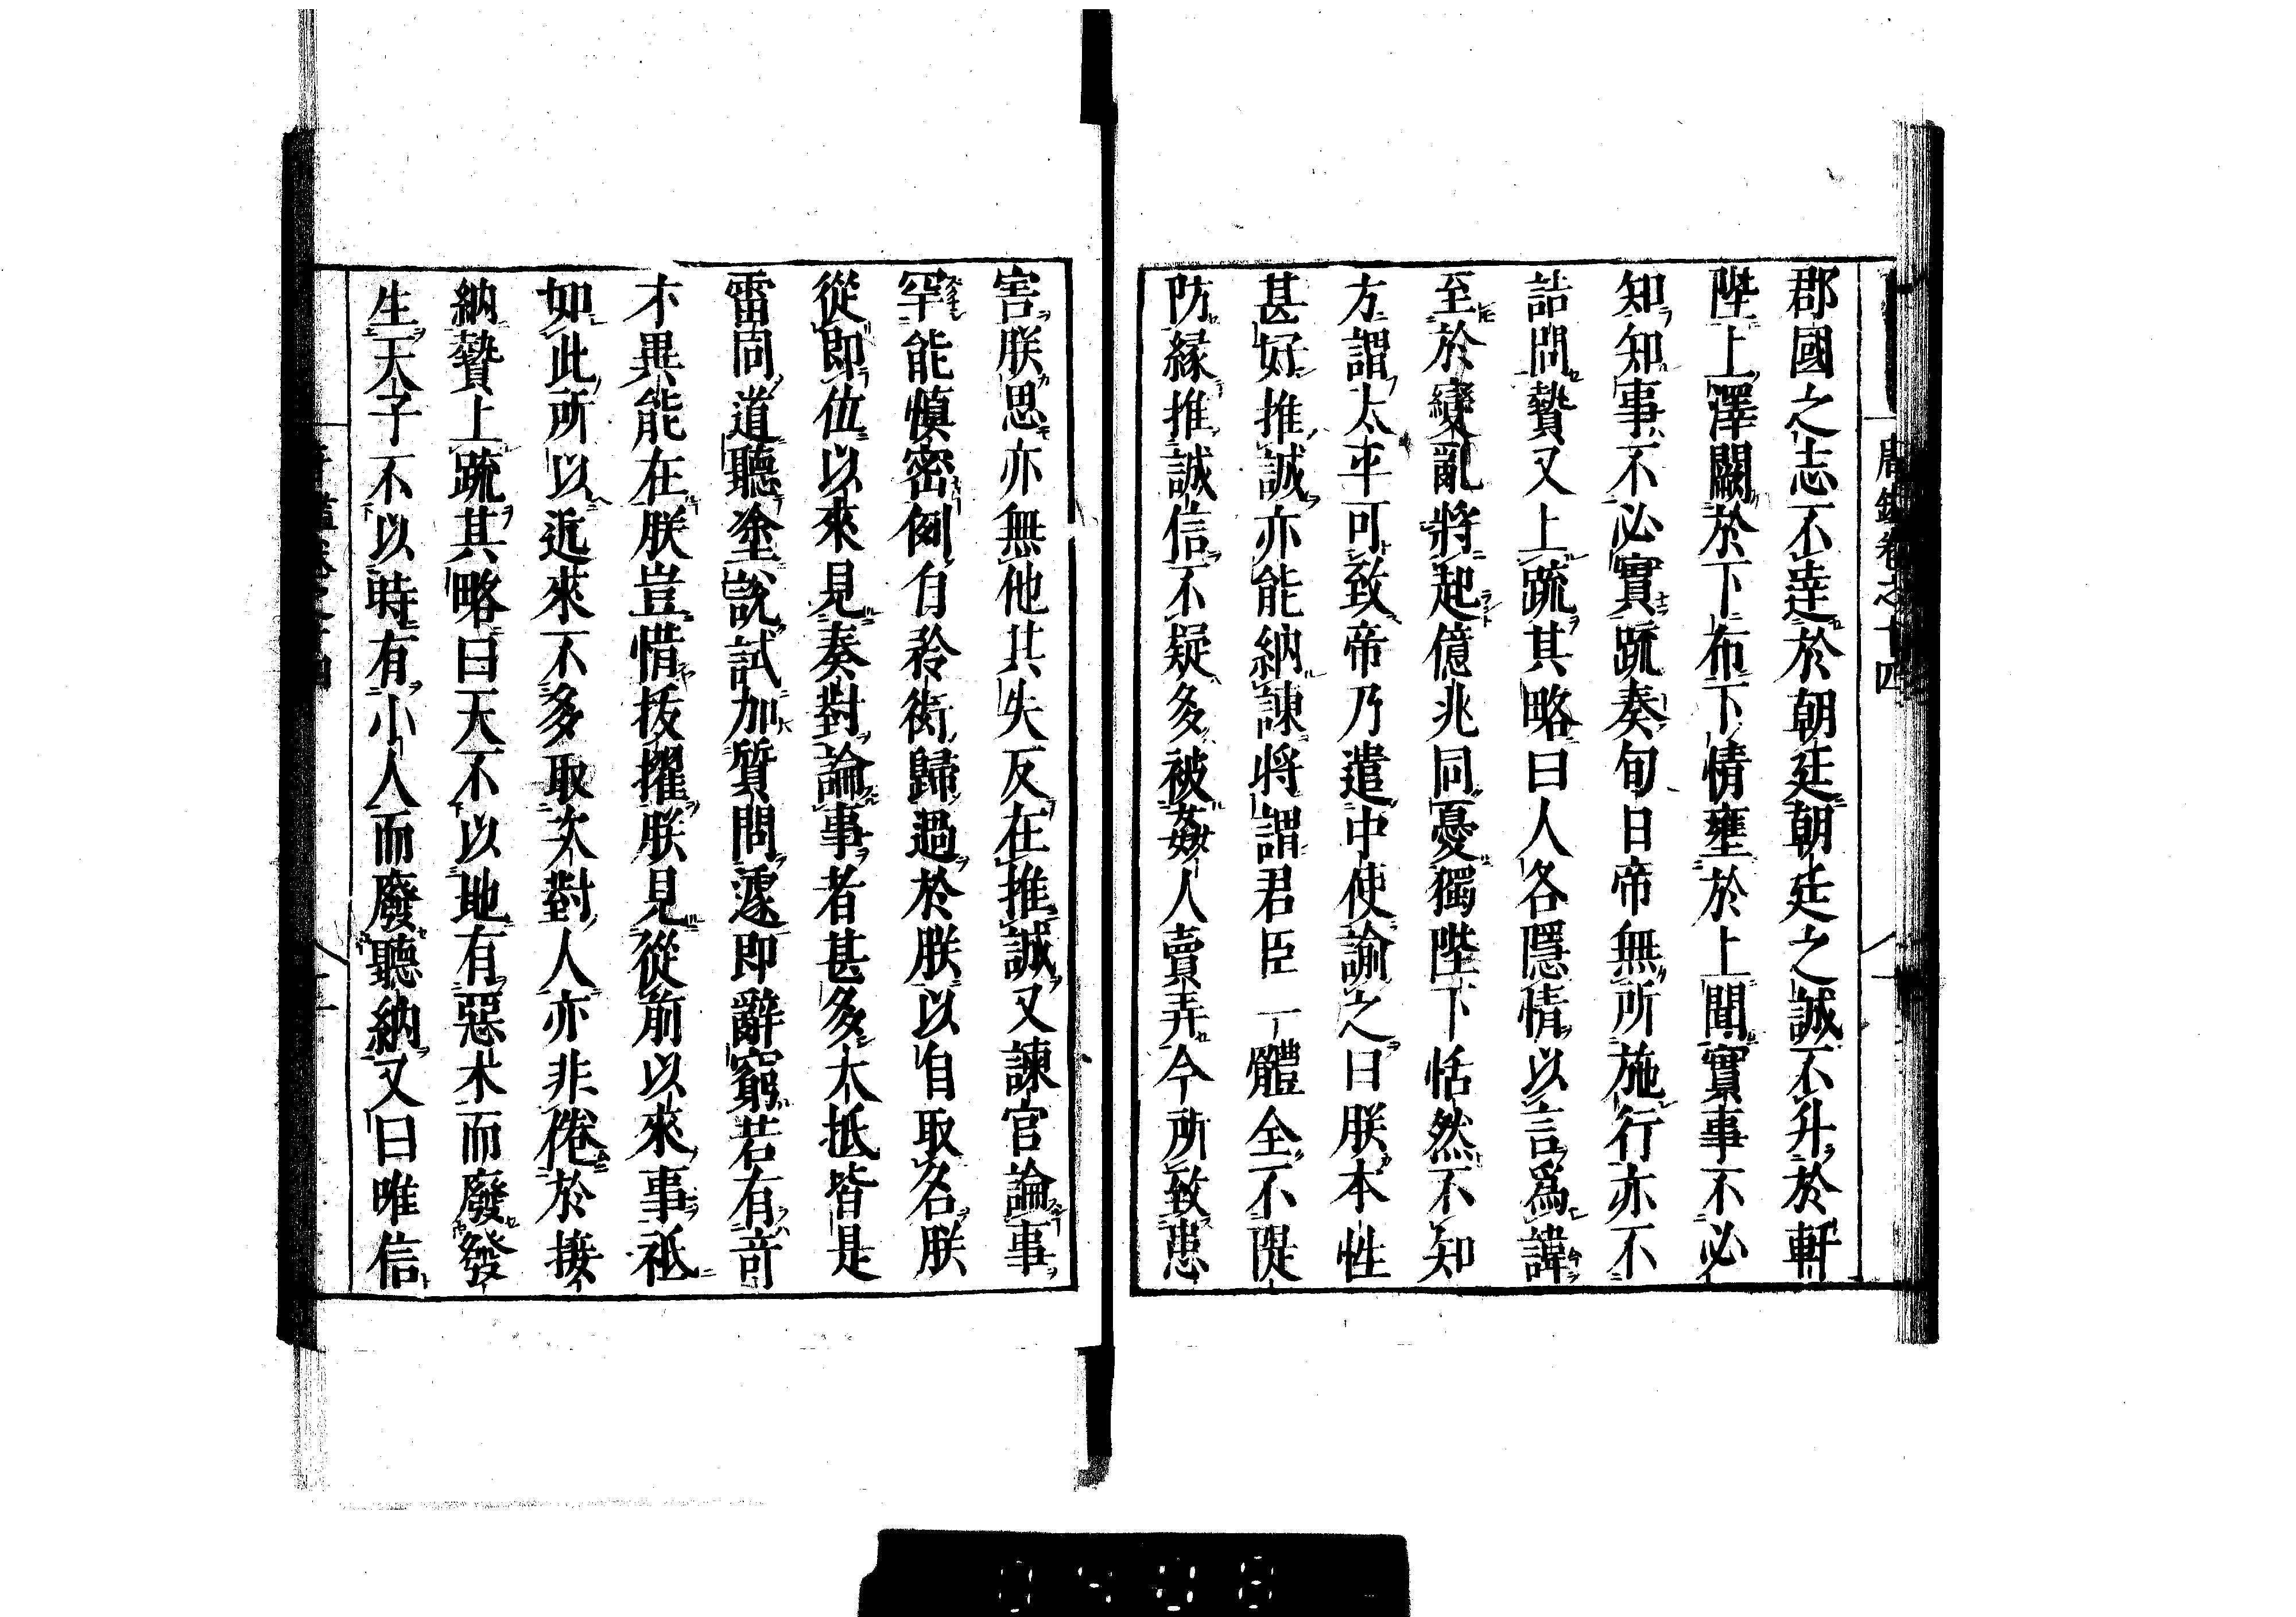 唐鑑卷之十四
郡國之志不達於朝廷朝廷之誠不升於軒
陛上澤闕於下布下情壅於上聞實事不必
知知事不必實踈奏旬日帝無所施行亦不
詰問贄又上踈其略曰人各隱情以言爲諱
至於變亂將起億兆同憂獨陛下恬然不知
方謂太平可致帝乃遣中使諭之曰朕本性
甚好推誠亦能納諫將謂君臣一體全不隄
防緣推誠信不疑多被姦人賣弄今所致患
害朕思亦無他其失反在推誠又諫官論事
罕能慎密例自矜衒歸過於朕以自取名朕
從即位以來見奏對論事者甚多太抵皆是
雷同道聽塗說試加質問遽即辭窮若有奇
才異能在朕豈惜拔擢朕見從前以來事祇
如此所以近來不多取次對人亦非倦於接
納贄上踈其略曰天不以地有惡木而廢發
生天子不以時有小人而廢聽納又曰唯信